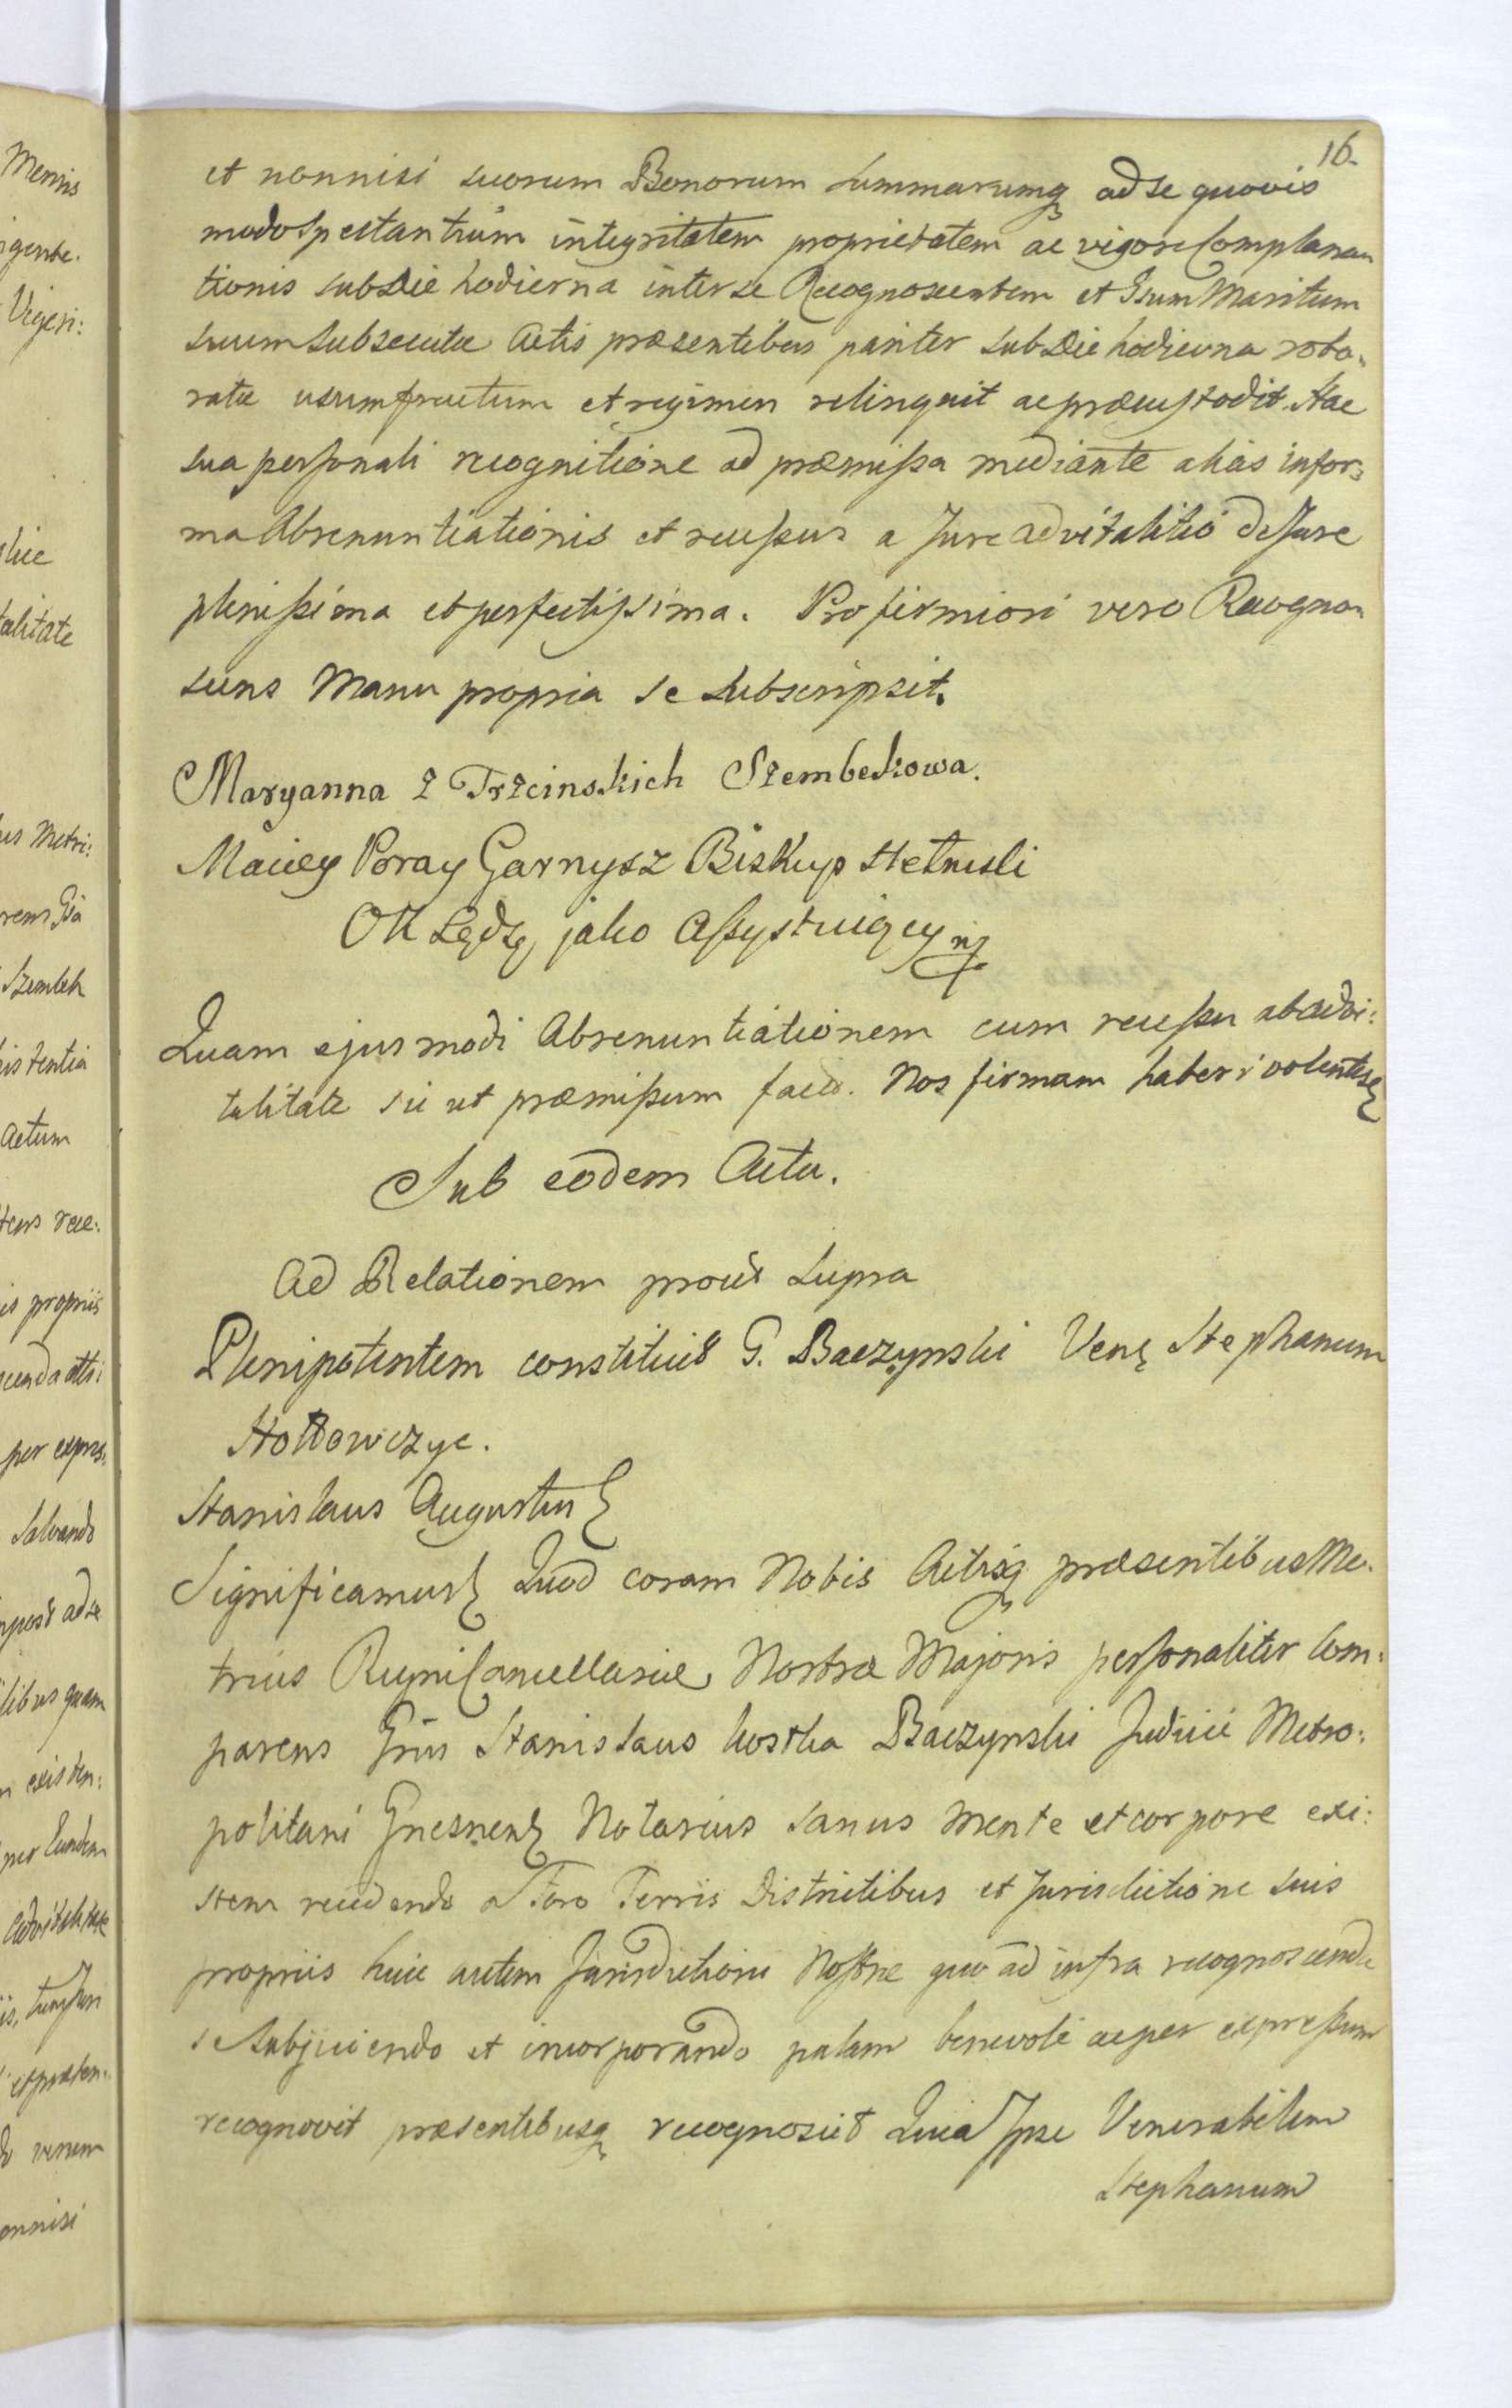 16.
et nonnisi suorum Bonorum summarumq ad se quovis
modo spectantium integritatem proprietatem ac vigore Complana=
tionis sub die hodierna inter se Recognoscentem et Gsum Maritum
suum subsecutæ Actis præsentibus pariter sub die hodierna robo=
ratæ usumfructum et regimen relinquit ac præcustodit. Hac
sua personali recognitione ad præmissa mediante alias infor=
ma Abrenuntiationis et recessus a Jure advitalitio de Jure
plenissima et perfectissima. Pro firmiori vero Recogno=
scens Manu propria se subscripsit.
Maryanna z Trzcinskich Szembekowa.
Maciey Poray Garnysz Biskup
jako Assystuiący
Quam ejusmodi Abrenuntiationem cum recessu ab advi:
talitate sic ut præmissum fact. Nos firmam haberi volentes
Sub eodem Actu.
Ad Relationem prout supra
Plenipotentem constituit G. Baczynski Ven. Stephanum
Hołłowczyc.
Stanislaus Augustus
Significamus Quod coram Nobis Actisq præsentibus Me=
trices Regni Cancellariæ Nostræ Majoris personaliter Com=
parens Gnus Stanislaus kostka Baczynski Judicii Metro:
politani Gnesnen Notarius sanus mente et corpore exi:
stens recedendo a Foro Terris Districtibus et Jurisdictione suis
propriis huic autem Jurisdictioni Nostræ quo ad infra recognoscenda
se subjiciendo et incorporando palam benevole ac per expressum
recognovit præsentibusq recognoscit Quia Ipse Venerabilem
Stephanum